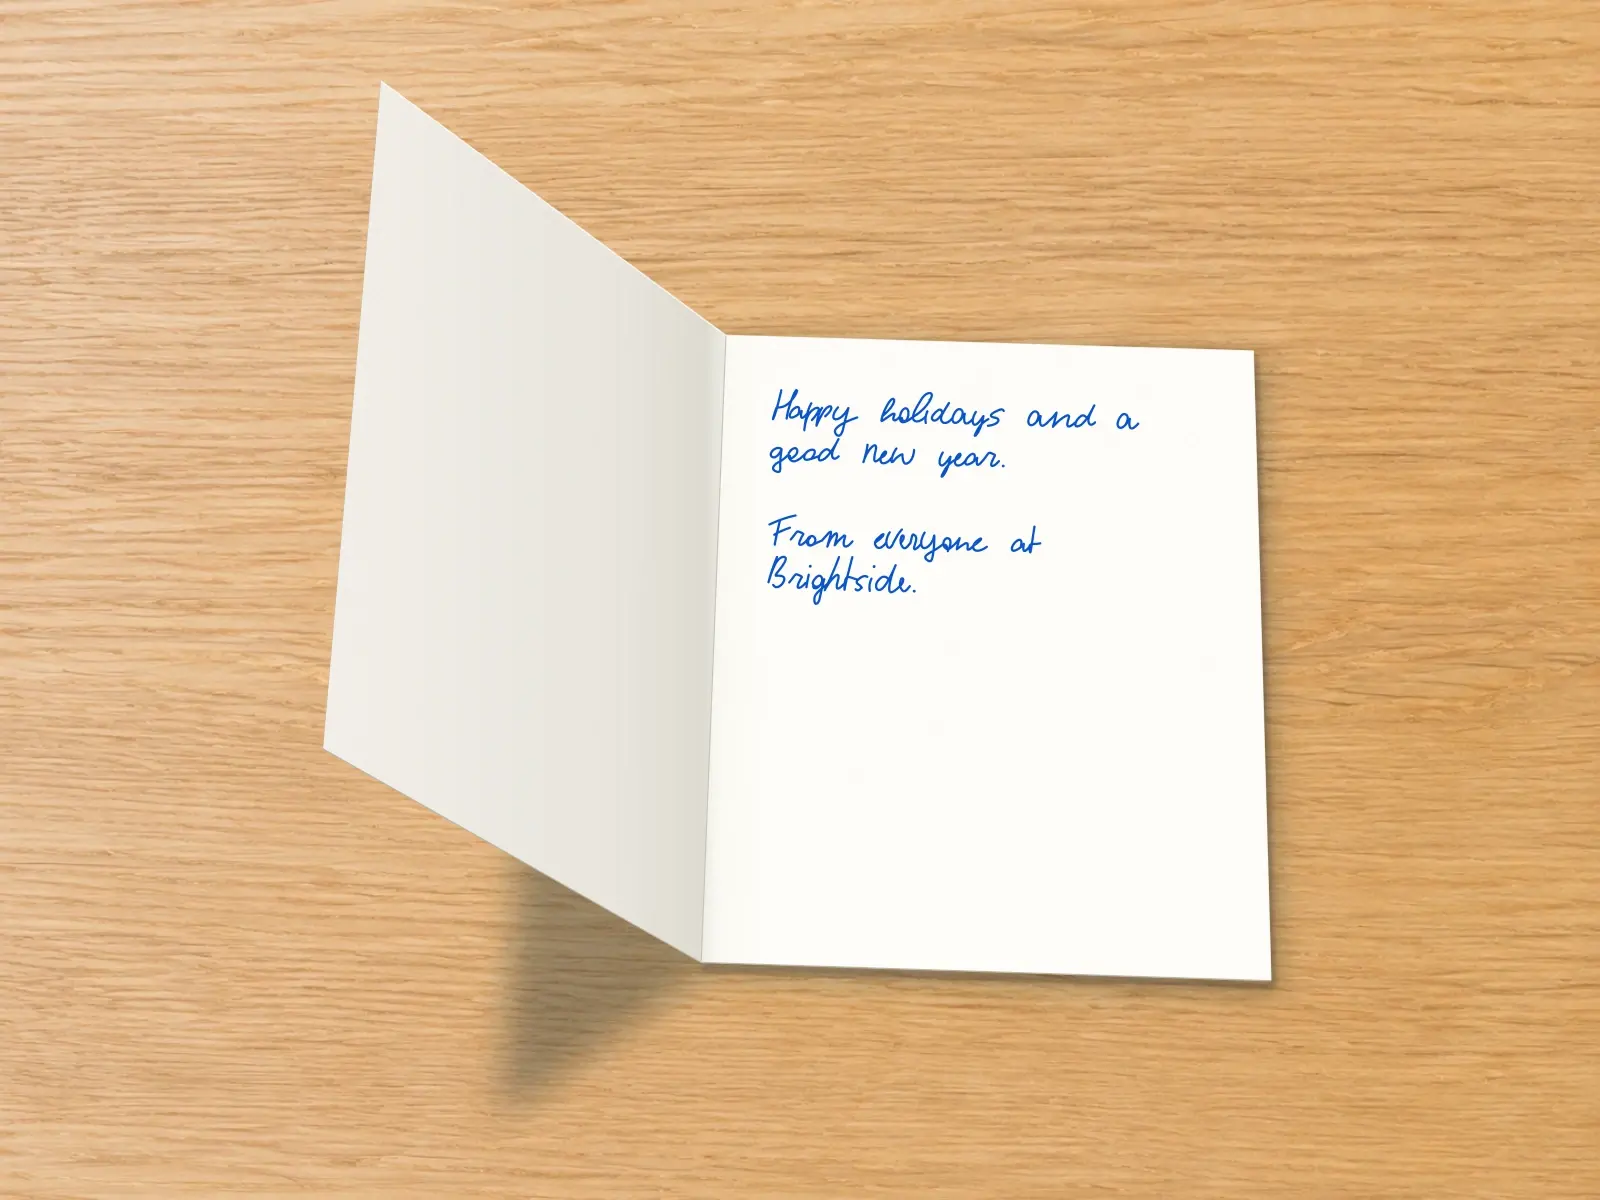 Happy holidays and a
good new year.
From everyone at
Brightside.